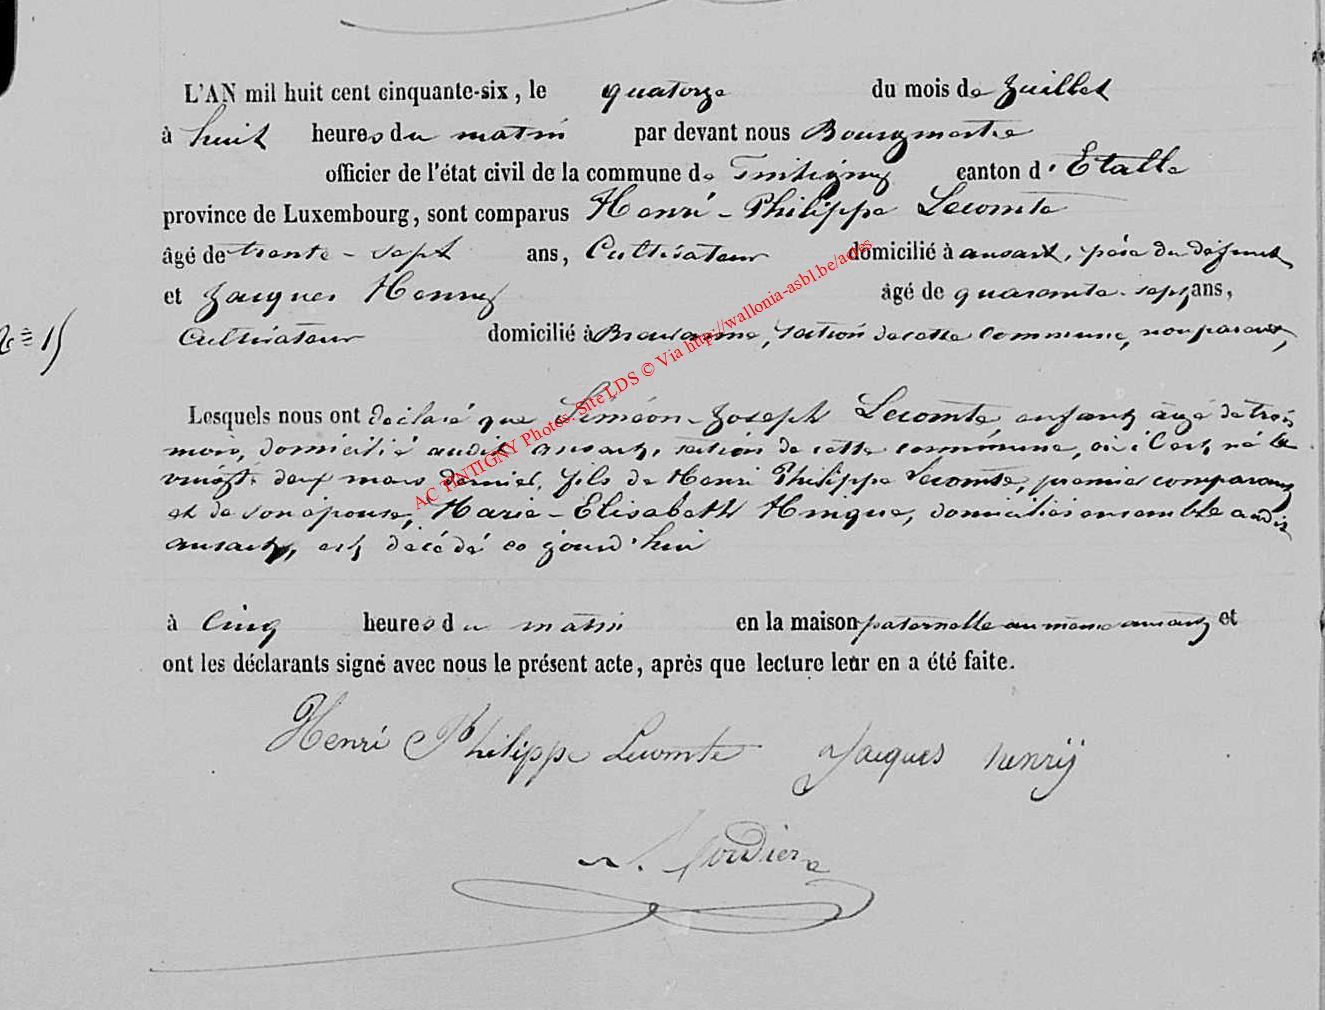 L'AN mil huit cent cinquante-six, le quatorze du mois de Juillet
à huit heures du matin par devant nous Bourgmestre
officier de l'état civil de la commune de Tintigny canton d'Etalle
province de Luxembourg, sont comparus Henri-Philippe Lecomte
âgé de trente-sept ans, Cultivateur domicilié à ansart, père du défunt
et Jacques Henry âgé de quarante-sept ans,
Cultivateur domicilié à section de cette commune, non parent,
N° 15
Lesquels nous ont déclaré que Siméon-Joseph Lecomte, enfant âgé de trois
mois, domicilié audit ansart, section de cette commune, où il est né le
vingt-deux mars dernier, fils de Henri Philippe Lecomte, premier comparant
et de son épouse, Marie-Elisabeth domiciliés ensemble audit
ansart, est décédé ce jourd'hui
à Cinq heures du matin en la maison paternelle au même ansart et
ont les déclarants signé avec nous le présent acte, après que lecture leur en a été faite.
Henri Philippe Lecomte Jacques henrÿ
AC TINTIGNY Photos Site LDS © Via http://wallonia-asbl.be/actes